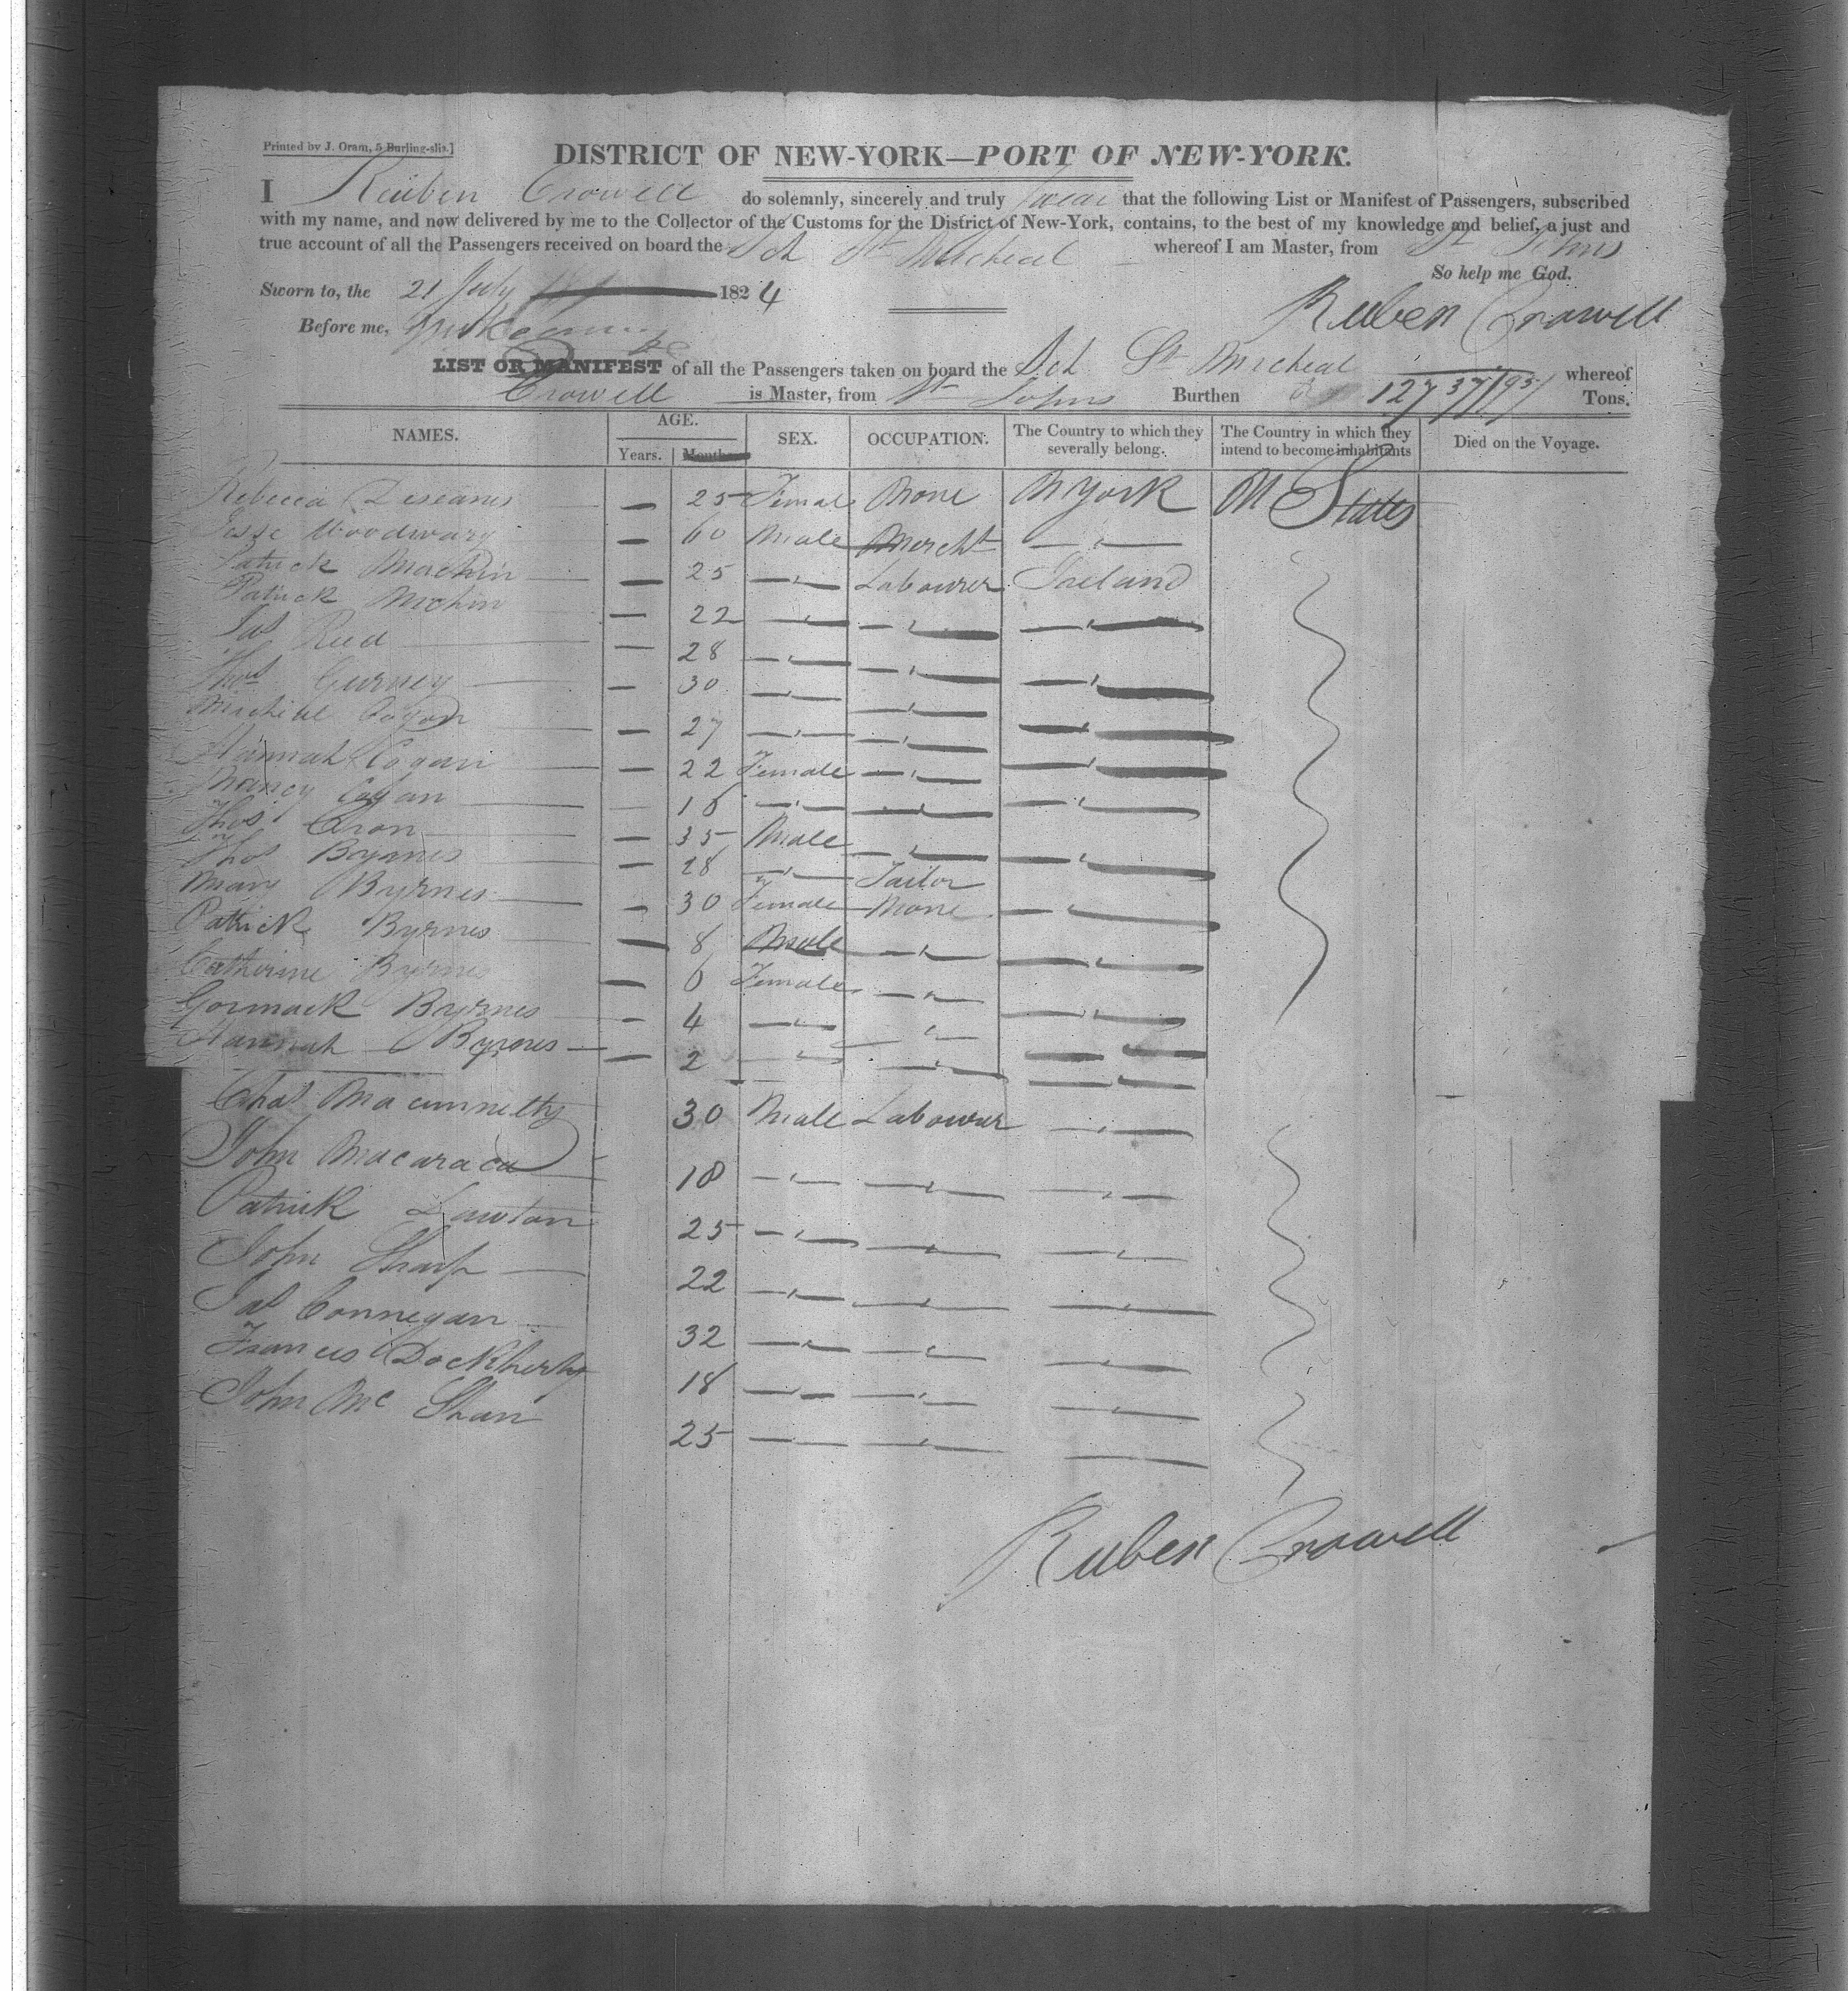 Printed by J. Oram, 5 Burling-slip.]
DISTRICT OF NEW-YORK—PORT OF NEW-YORK.
I Reuben Crowell do solemnly, sincerely and truly swear that the following List or Manifest of Passengers, subscribed
with my name, and now delivered by me to the Collector of the Customs for the District of New-York, contains, to the best of my knowledge and belief, a just and
true account of all the Passengers received on board the Sch St Micheal whereof I am Master, from St Johns
So help me God.
Sworn to, the 21 July 1824
Reuben Crowell
Before me,
LIST OR MANIFEST of all the Passengers taken on board the Sch St Micheal whereof
Crowell is Master, from St Johns Burthen 127 37/95 Tons.
NAMES. AGE. SEX. OCCUPATION. The Country to which they severally belong. The Country in which they intend to become inhabitants Died on the Voyage.
Years. Months
Rebecca — 25 Female None N York U States
Jesse Woodward — 60 Male Mercht — " —
Patrick Machin — 25 — " — Labourer Ireland
Patrick Mchin — 22 — " — — " — — " —
Jas Reed — 28 — " — — " — — " —
Thos Gurney — 30 — " — — " — — " —
Micheal Cogan — 27 — " — — " — — " —
Hannah Cogan — 22 Female — " — — " —
Nancy Cogan — 18 — " — — " — — " —
Thos Cron — 35 Male — " — — " —
Thos Byrnes — 28 — " — Tailor
Mary Byrnes — 30 Female None — " —
Patrick Byrnes — 8 Male — " — — " —
Catherine Byrnes — 6 Female — " — — " —
Cormack Byrnes — 4 — " — — " — — " —
Hannah Byrnes — 2 — " — — " — — " —
Chas 30 Male Labourer — " —
John Macaraca 18 — " — — " — — " —
Patrick Lawton 25 — " — — " — — " —
John Sharp 22 — " — — " — — " —
Jas Connegan 32 — " — — " — — " —
Francis Dockherty 18 — " — — " — — " —
John Mc Shan 25 — " — — " — — " —
Reuben Crowell